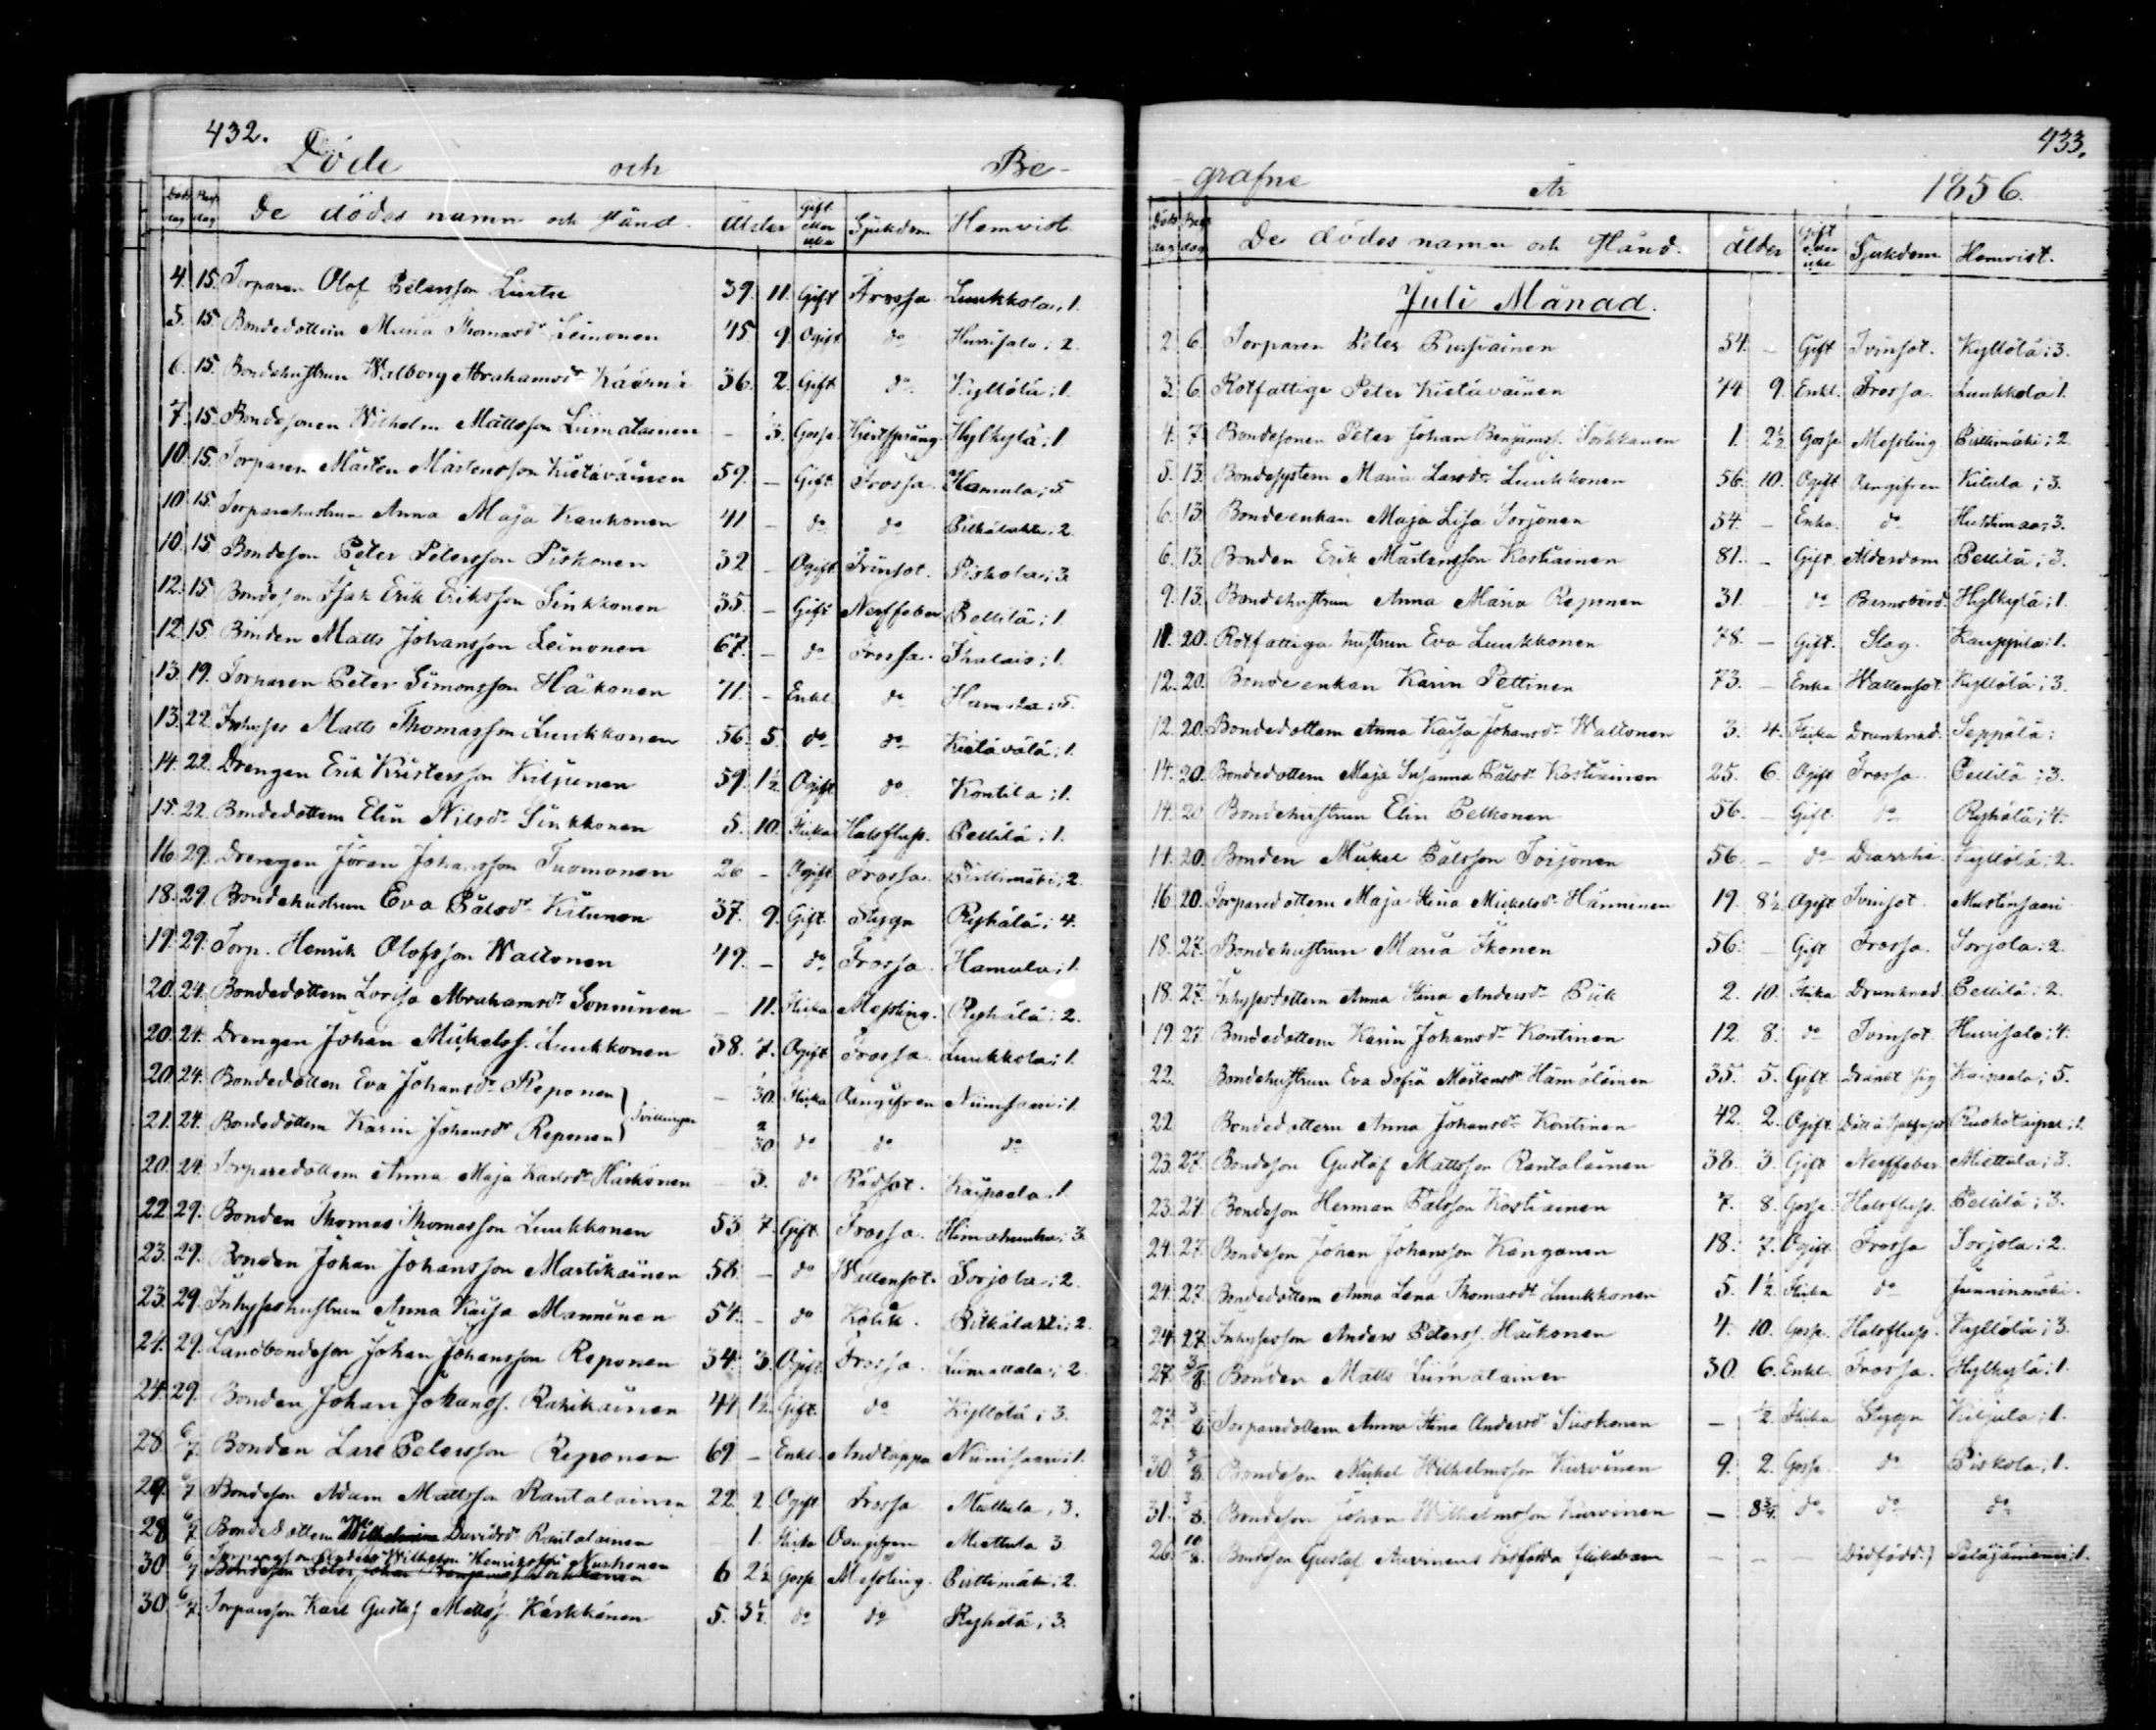 432.
Döde och Be-
Döds dag Begr. dag De dödas namn och Stånd. Ålder Gift eller icke Sjukdom Hemvist.
4. 15. Torparen Olof Petersson 39. 11. Gift Frossa Luukkola; 1.
5. 15. Bondedottern Maria Thomasdr Leinonen 45. 9. Ogift do Hurrisalo; 2.
6. 15. Bondehustrun Walborg Abrahamsdr Käärnä 36. 2. Gift do Kyllölä; 1.
7. 15. Bondesonen Wilhelm Mattsson Liimatainen – 3. Gosse Hjertsprång Hylkylä; 1
10. 15. Torparen Mårten Mårtensson Kietäväinen 59. – Gift Frossa. Hamula; 5.
10 15. Torparehustrun Anna Maja Kaukonen 41 – do do Pitkälahti; 2.
10. 15. Bondeson Peter Petersson Piskonen 32 – Ogift Tvinsot. Piskola; 3.
12. 15. Bondeson Isak Erik Eriksson Sinkkonen 35. – Gift Nerffeber Pellilä; 1.
12. 15. Bonden Matts Johansson Leinonen 67. – do Frossa. Ihalais; 1.
13. 19. Torparen Peter Simonsson Häkonen 71. – Enkl. do Hamula; 5.
13. 22. Inhyses Matts Thomasson Luukkonen 56. 5. do do Kietävälä; 1.
14. 22. Drengen Erik Kristersson Kiljunen 59. 1½ Ogift do Kontila; 1.
15. 22. Bondedottern Elin Nilsdr Sinkkonen 5. 10. Flicka Halsfluss. Pellilä; 1.
16. 29. Drengen Jöran Johansson Tuomonen 26 – Ogift Frossa. Pirttimäki; 2.
18. 29. Bondehustrun Eva Pålsdr Kitunen 37. 9. Gift Stygn Ryhälä; 4.
19. 29. Torp. Henrik Olofsson Waltonen 49. – do Frossa. Hamula; 1.
20. 24. Bondedottern Lovisa Abrahamsdr Sonninen – 11. Flicka Messling. Ryhälä; 2.
20. 24. Drengen Johan Mickelss. Luukkonen 38. 7. Ogift Frossa Luukkola; 1.
20. 24. Bondedottern Eva Johansdr Reponen – 1/30. Flicka Oangifven Niinisaari; 1.
Tvillingar
21. 24. Bondedottern Karin Johansdr Reponen – 2/30 do do do
20. 24. Torparedottern Anna Maja Karlsdr Härkönen – 3. do Rödsot. Kaipaala. 1.
22. 29. Bonden Thomas Thomasson Luukkonen 53 7. Gift Frossa. Himahuuha; 3.
23. 29. Bonden Johan Johansson Martikainen 58. – do Wattensot. Sorjola; 2.
23. 29. Inhyseshustrun Anna Kaisa Manninen 54. – do Kolik. Pitkälahti; 2.
24. 29. Landbondeson Johan Johansson Reponen 34. 3. Ogift. Frossa. Liimattala; 2
24. 29. Bonden Johan Johanss. Rahikainen 44 1½. Gift. do Kyllölä; 3.
28. 6/7. Bonden Lars Petersson Reponen 69 – Enkl. Andtäppa Niinisaari; 1.
29. 6/7 Bondeson Adam Mattsson Rantalainen 22. 2 Ogift Frossa Miettula; 3.
28 6/7 Bondedottern Wilhelmina Davidsdr Rantalainen – 1. Flicka Oangifven Miettula 3.
30 6/7 Torpareson Anders Wilhelm Henriksson Nuuhonen
Bondeson Peter Johan Benjamss Sorkkanen 6 2½ Gosse Messling. Pirttimäki; 2.
30. 6/7. Torpareson Karl Gustaf Mattss. Kärkkänen 5. 3½. do do Ryhälä; 3.
433.
-grafne År 1856.
Döds dag Begr. dag De dödas namn och Stånd. Ålder Gift eller icke Sjukdom Hemvist.
Juli Månad.
2 6. Torparen Peter Pursiainen 54. – Gift Tvinsot. Kyllölä; 3.
3. 6. Rotfattige Peter Kietäväinen 74 9. Enkl. Frossa. Luukkola 1.
4. 7 Bondesonen Peter Johan Benjamss. Sorkkanen 1. 2½ Gosse Messling Pirttimäki; 2.
5. 13. Bondesystern Maria Larsdr Luukkonen 56. 10. Ogift Oangifven Kitula; 3.
6. 13. Bondeenkan Maja Lisa Sorjonen 54. – Enka. do Huttimaa; 3.
6. 13. Bonden Erik Mårtensson Kostiainen 81. – Gift. Ålderdom Pellilä; 3.
9. 13. Bondehustrun Anna Maria Reponen 31. do Barnsbörd. Hylkylä; 1.
11. 20. Rotfattiga hustrun Eva Luukkonen 78. – Gift. Slag. Kauppila; 1.
12. 20. Bondeenkan Karin Pettinen 73. – Enka Wattensot. Kyllölä; 3.
12. 20. Bondedottern Anna Kaisa Johansdr Waltonen 3. 4. Flicka Drunknad. Seppälä;
14. 20. Bondedottern Maja Susanna Pålsdr Kostiainen 25. 6. Ogift Frossa. Pellilä; 3.
14. 20 Bondehustrun Elin Pelkonen 56. – Gift. do Ryhälä; 4.
14. 20. Bonden Mickel Pålsson Toijonen 56. – do Diarrhé. Kyllölä; 2.
16 20. Torparedottern Maja Stina Mickelsdr Hänninen 19. 8½ Ogift Tvinsot. Martinsaari
18. 27. Bondehustrun Maria Ikonen 56. – Gift Frossa. Sorjola: 2.
18. 27. Inhysesdottern Anna Stina Andersdr Piik 2. 10. Flicka Drunknad Pellilä: 2.
19. 27. Bondedottern Karin Johansdr Kontinen 12. 8. do Tvinsot. Hurrisalo; 4.
22. Bondehustrun Eva Sofia Mårtensdr Hämäläinen 35. 5. Gift. Dränkt sig Kaipaala; 5.
22. Bondedottern Anna Johansdr Kontinen 42. 2. Ogift. Ruokotaipal; 1.
23. 27. Bondeson Gustaf Mattsson Rantalainen 38. 3. Gift Nerffeber Miettula; 3.
23. 27. Bondeson Herman Pålsson Kostiainen 7. 8. Gosse. Halsfluss. Pellilä; 3.
24. 27. Bondeson Johan Johansson Kanganen 18. 7. Ogift. Frossa Sorjola: 2.
24. 27. Bondedottern Anna Lena Thomasdr Luukkonen 5. 1½. Flicka do Junninmäki.
24 27. Inhyseson Anders Peterss. Häikonen 4. 10. Gosse. Halsfluss. Kyllölä; 3.
27. 3/8. Bonden Matts Liimatainen 30. 6. Enkl. Frossa. Hylkylä; 1.
27. 3/8 Torparedottern Anna Stina Andersdr Siiskonen – ½. Flicka Stygn Kiljula; 1.
30 3/8. Bondeson Mickel Wilhelmsson Kurvinen 9. 2. Gosse. do Piskola; 1.
31. 3/8. Bondeson Johan Wilhelmsson Kurvinen – 8¾. do do do
26. 10/8. Bondeson Gustaf Auvinens dödfödda flickebarn – – – Dödfödd.) 1.